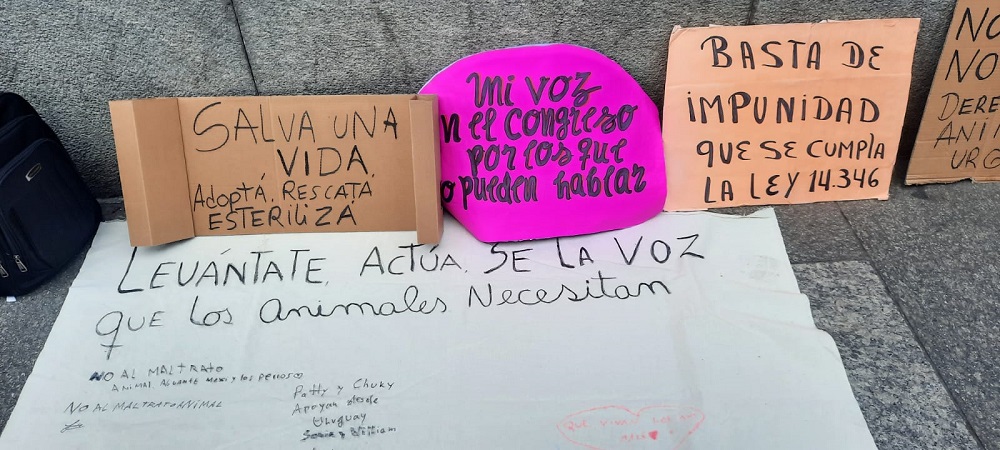 SALVA UNA
VIDA.
Adoptá. RESCATA
ESTERILIZÁ
mi voz
n el congreso
por los que
o pueden hablar
BASTA DE
IMPUNIDAD
QUE SE CUMPLA
LA LEY 14.346
NO
NO
DERE
ANI
URG
LEVÁNTATE, ACTÚA. SE LA VOZ
que los Animales Necesitan
NO AL MALTRATO
ANIMAL AGUANTE y los perrosos
NO AL MALTRATO ANIMAL
Patty y Chuky
Apoyan desde
Uruguay
QUE